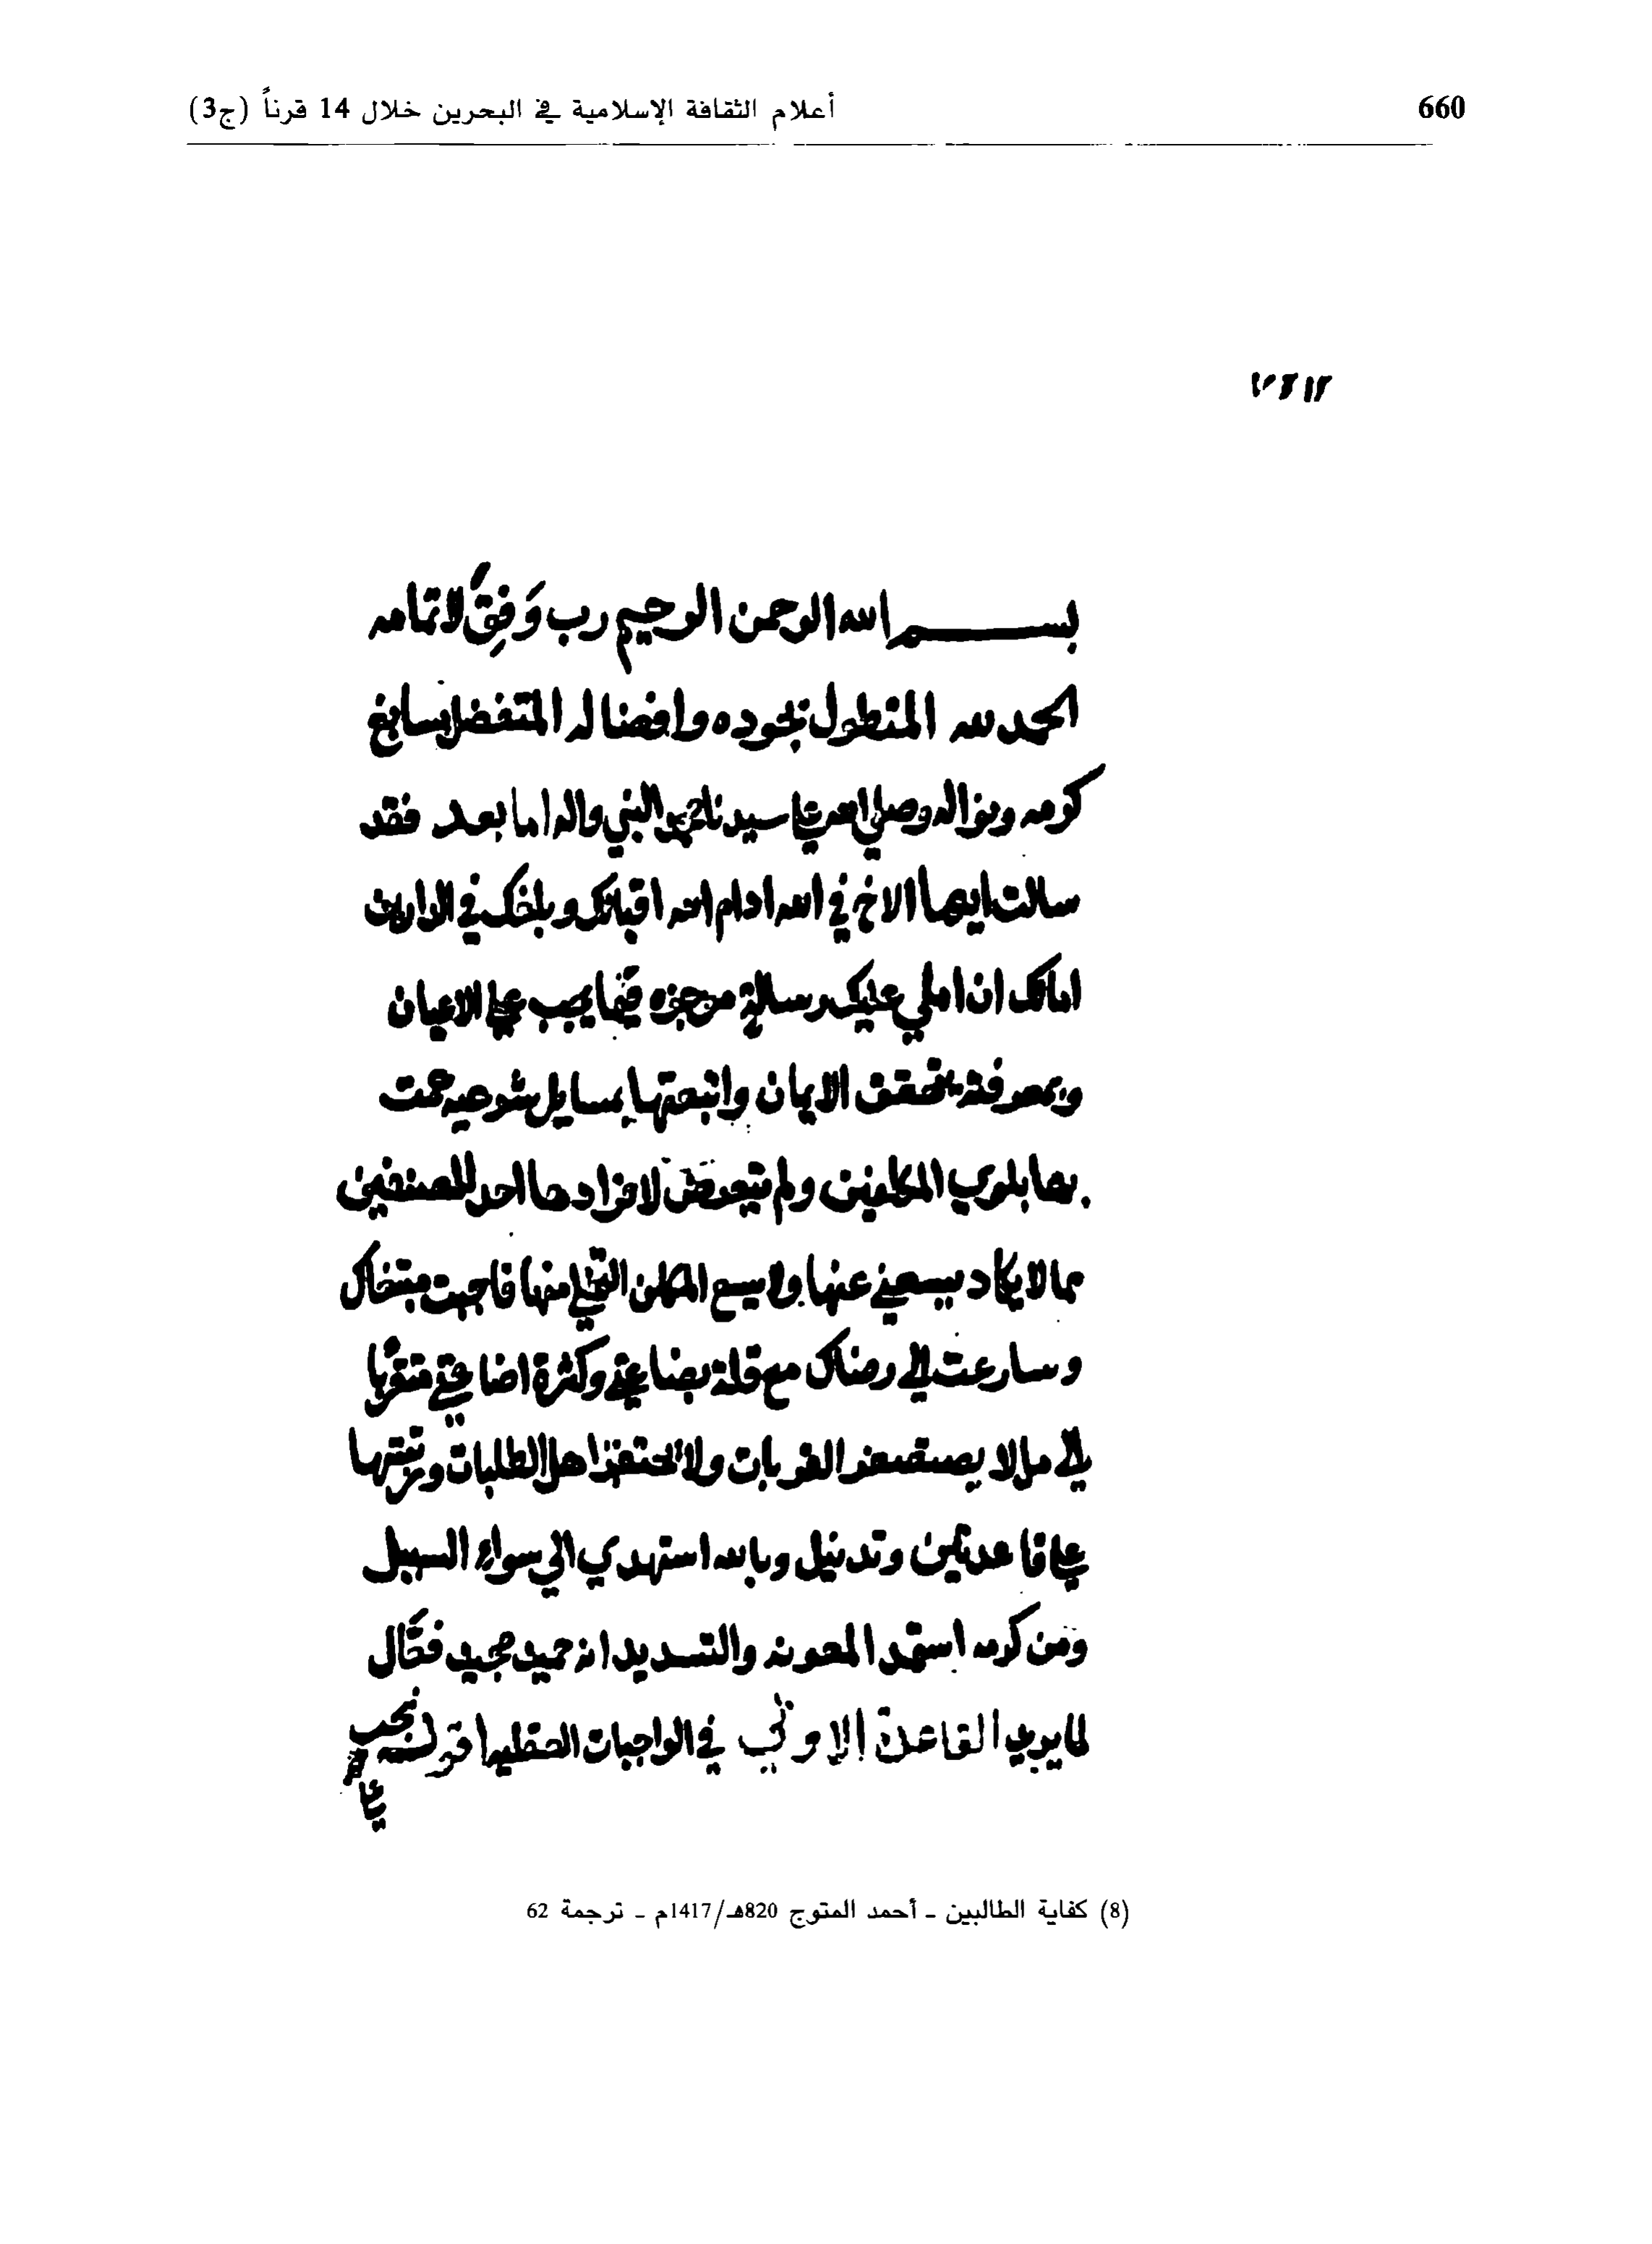 660
أعلام الثقافة الإسلامية في البحرين خلال 14 قرناً (ج3)
بسم الله الرحمن الرحيم رب وَفِقْ لاتمامه
الحمد لله المتطول بجوده وافضاله المتفضل بسابغ
كرمه ونواله وصلى الله على سيدنا محمد النبي واله اما بعد فقد
سالت ايها الاخ في الله ادام الله اقبالك وبلغك في الدارين
امالك ان املي عليك رسالة موجزه فيما يجب على الاعيان
وبمعرفته يتحقق الايمان واتبعتها بمسايل شرعيه عمت
بها بلوي المكلفين ولم يتعرض لافرادها احد للمصنفين
مما لا يكاد يستغني عنها ولا يسع المكلف التخلي منها فاجبت مبتغاك
وسارعت الى رضاك مع قلة بضاعتي وكثرة اضاعتي متقربا
الى من لا يستصغر القربات ولا يحتقر اهل الطلبات ورتبتها
على قاعدتين وتذنيل وبالله استهدي الى سواء السبيل
ومن كرمه استمد المعونه والتسديد انه حميد مجيد فعّال
لما يريد القاعدة الاولى في الواجبات العقليه اقول يجب
على
(8) كفاية الطالبين - أحمد المتوج 820هـ/1417م - ترجمة 62